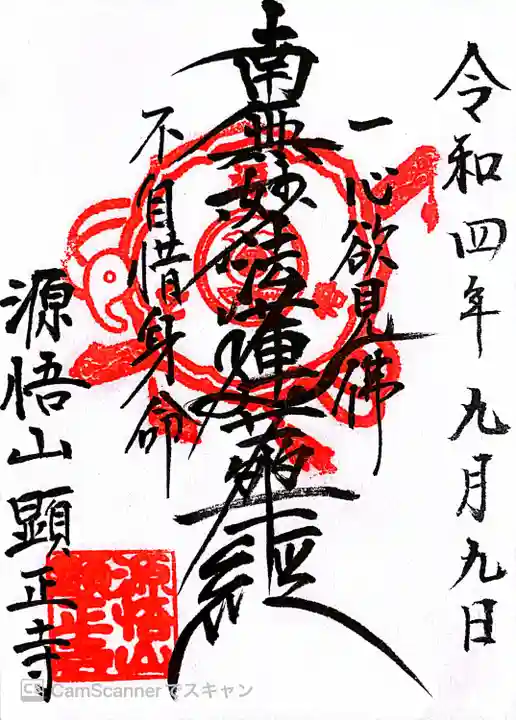 令和四年九月九日
一心欲見佛
南無妙法蓮華経
不自惜身命
源悟山顕正寺
源悟山
顕正寺
CS CamScannerでスキャン